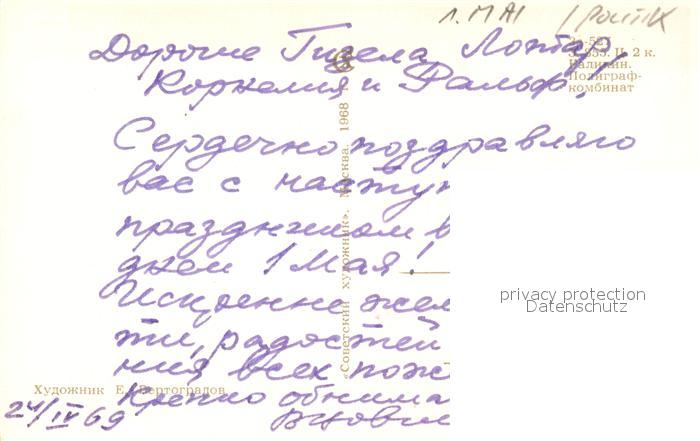 1. MAI
Дорогие Гизела, Лотар,
Корнелия и Ральф!
Сердечно поздравляю
вас с насту
праздником в
днем 1 Мая!
Искренне жел
ти, радостей
ния всех пож
Крепко обнима
24/IV 69
Художник Е. Вертоградов
«Советский художник». Москва. 1968
2 к.
Калинин.
Полиграф-
комбинат
privacy protection
Datenschutz